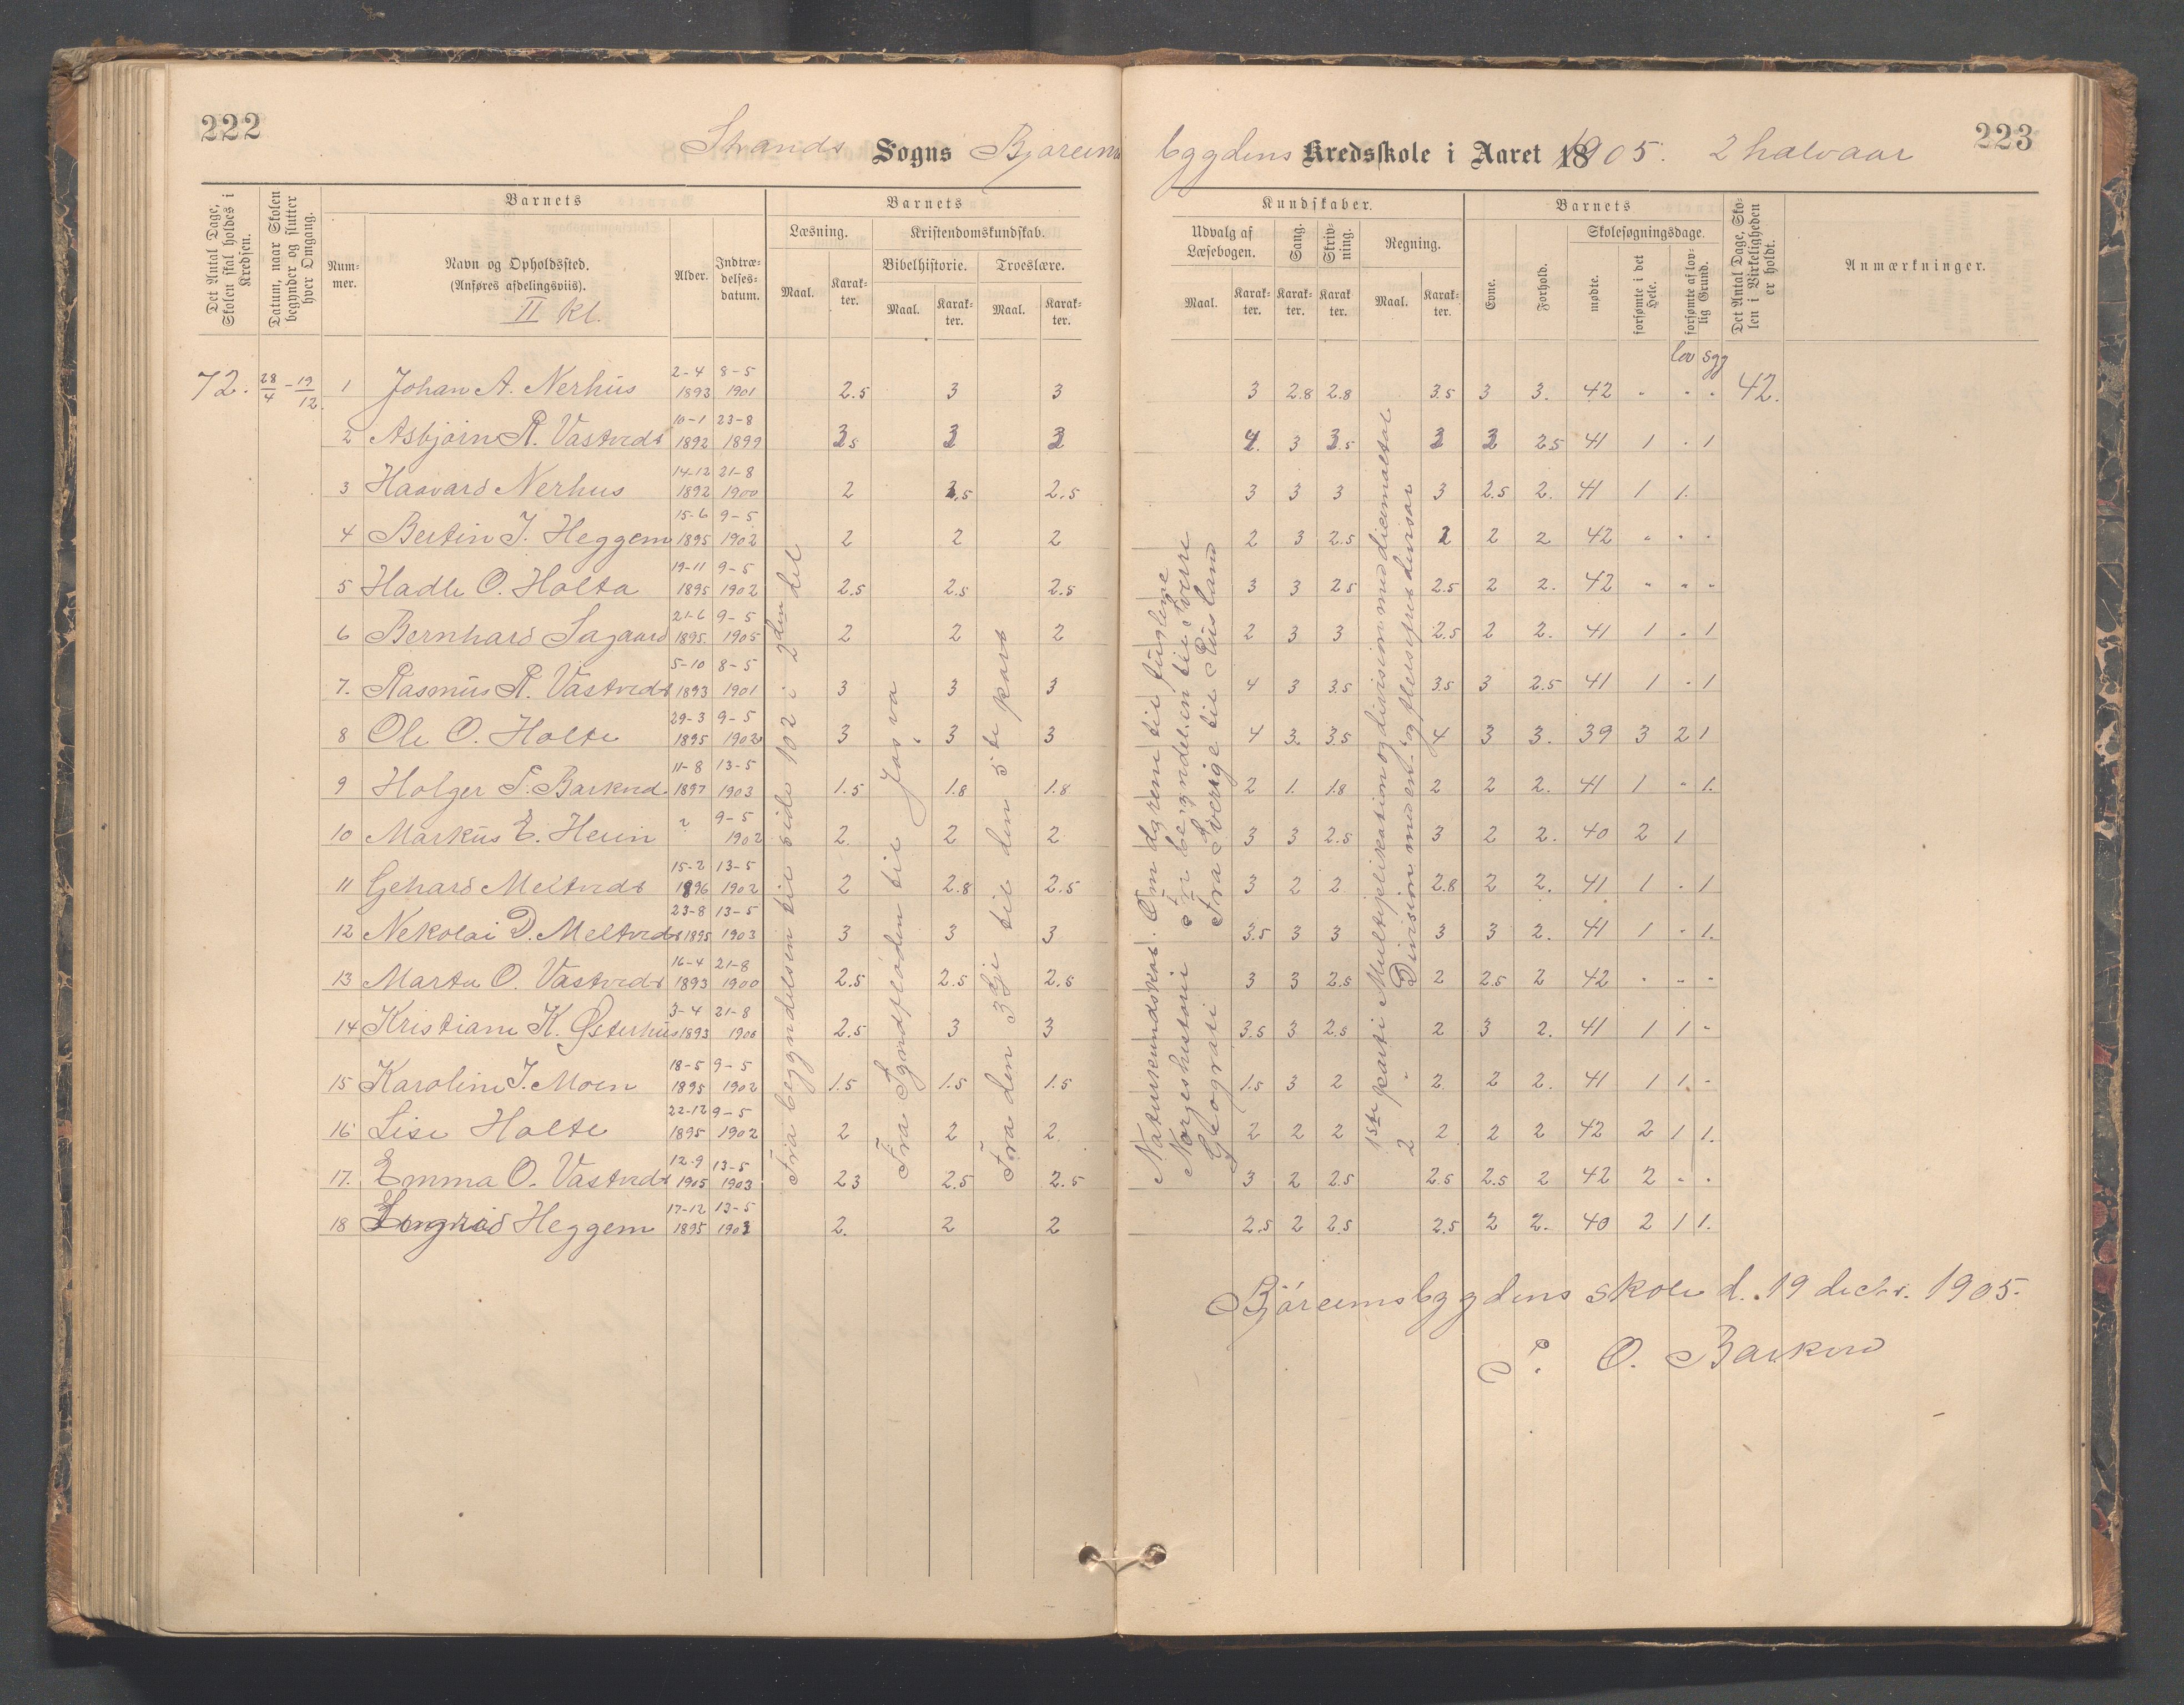 222
Strands Sogns Bjøreims
bygdens Kredsskole i Aaret 1905. 2 halvaar
223
Det Antal Dage, Skolen skal holdes i Kredsen.
Datum, naar Skolen begynder og slutter hver Omgang.
Barnets
Num-mer.
Navn og Opholdssted.
(Anføres afdelingsviis).
II Kl.
Alder.
Indtræ-delses-datum.
Barnets
Læsning.
Maal.
Karak-ter.
Kristendomskundskab.
Bibelhistorie.
Maal.
Karak-ter.
Troeslære.
Maal.
Karak-ter.
Kundskaber.
Udvalg af Læsebogen.
Maal.
Karak-ter.
Sang.
Karak-ter.
Skriv-ning.
Karak-ter.
Regning.
Maal.
Karak-ter.
Barnets
Evne.
Forhold.
Skolesøgningsdage.
mødte.
forsømte i det Hele.
forsømte af lov-lig Grund.
Det Antal Dage, Sko-len i Virkeligheden er holdt.
Anmærkninger.
lov syg
72. 28/4 - 19/12. 1 Johan A. Nerhus 2-4 1893 8-5 1901 2.5 3 3 3 2.8 2.8 3.5 3 3. 42 " " " 42.
2 Asbjørn R. Vastveds 10-1 1892 23-8 1899 3.5 3 3 4. 3 3.5 3 3 2.5 41 1 . 1
3 Haavard Nerhus 14-12 1892 21-8 1900 2 2.5 2.5 3 3 3 3 2.5 2. 41 1 1.
4 Bertin J. Heggem 15-6 1895 9-5 1902 2 2 2 2 3 2.5 2 2 2 42 " " "
5 Hadle O. Holta 19-11 1895 9-5 1902 2.5 2.5 2.5 3 3 2.5 2.5 2 2. 42 " " "
6 Bernhard Sagaard 21-6 1895 9-5 1905 2 2 2 2 3 3 2.5 2 2. 41 1 . 1
7. Rasmus R. Vastveds 5-10 1893 8-5 1901 3 3 3 4 3 3.5 3.5 3 2.5 41 1 . 1
8 Ole O. Holte 29-3 1895 9-5 1902 3 3 3 4 3. 3.5 4 3 3. 39 3 2 1
9 Holger P. Barkved. 11-8 1897 13-5 1903 1.5 1.8 1.8 2 1. 1.8 2 2 2. 41 1 " 1.
10 Markus E. Heien ? 9-5 1902 2. 2 2 3 3 2.5 3 2 2. 40 2 1
11 Gehard Meltveds 15-2 1896 13-5 1902 2 2.8 2.5 3 2 2 2.8 2 2. 41 1 . 1
12 Nekolai D. Meltveds 23-8 1895 13-5 1903 3 3 3 3.5 3 3 3 3 2. 41 1 " 1.
13 Marta O. Vastveds 16-4 1893 21-8 1900 2.5 2.5 2.5 3 3 2.5 2 2.5 2 42 " " "
14 Kristiane K. Østerhus 3-4 1893 21-8 1900 2.5 3 3 3.5 3 2.5 2 3 2. 41 1 1 "
15 Karoline J. Moen 18-5 1895 9-5 1902 1.5 1.5 1.5 1.5 3 2 2. 2 2. 41 1 1. "
16 Lise Holte 22-12 1895 9-5 1902 2 2 2 2 2 2 2 2 2 42 2 1 1.
17. Emma O. Vastveds 12-9 1905 13-5 1903 2.3 2.5 2.5 3 2 2.5 2.5 2.5 2 42 2 " "
18 Heggem 17-12 1895 13-5 1903 2. 2 2 2.5 2 2.5 2.5 2 2. 40 2 1 1.
Fra begyndelsen til side 102 i 2den del
Fra Syndfloden til Josva
Fra den 3dje til den 5te part
Naturkundskab. Om dyrene til fuglene
Norjeshistorie Fra begyndelsen til Sverre
Geografi Fra Sverige til Rusland
1ste parti Multiplikation og division med decimaltal
2 " Division med en- og flersifret divisor
Bjøreimsbygdens skole d. 19 decbr. 1905.
P. O. Barkved